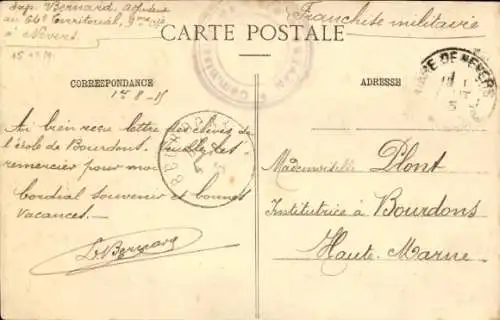 Exp. Bernard, adjudant
au 64e Territorial, 9me Cie
à Nevers
Franchise militaire
CARTE POSTALE
CORRESPONDANCE
ADRESSE
GARE DE NEVERS
1er 8-15
Ai bien reçu lettre des élèves de
l'école de Bourdons. Veuillez les
remercier pour moi
cordial souvenir et bonnes
vacances. —
L. Bernard
Mademoiselle Plont
Institutrice à Bourdons
Haute Marne